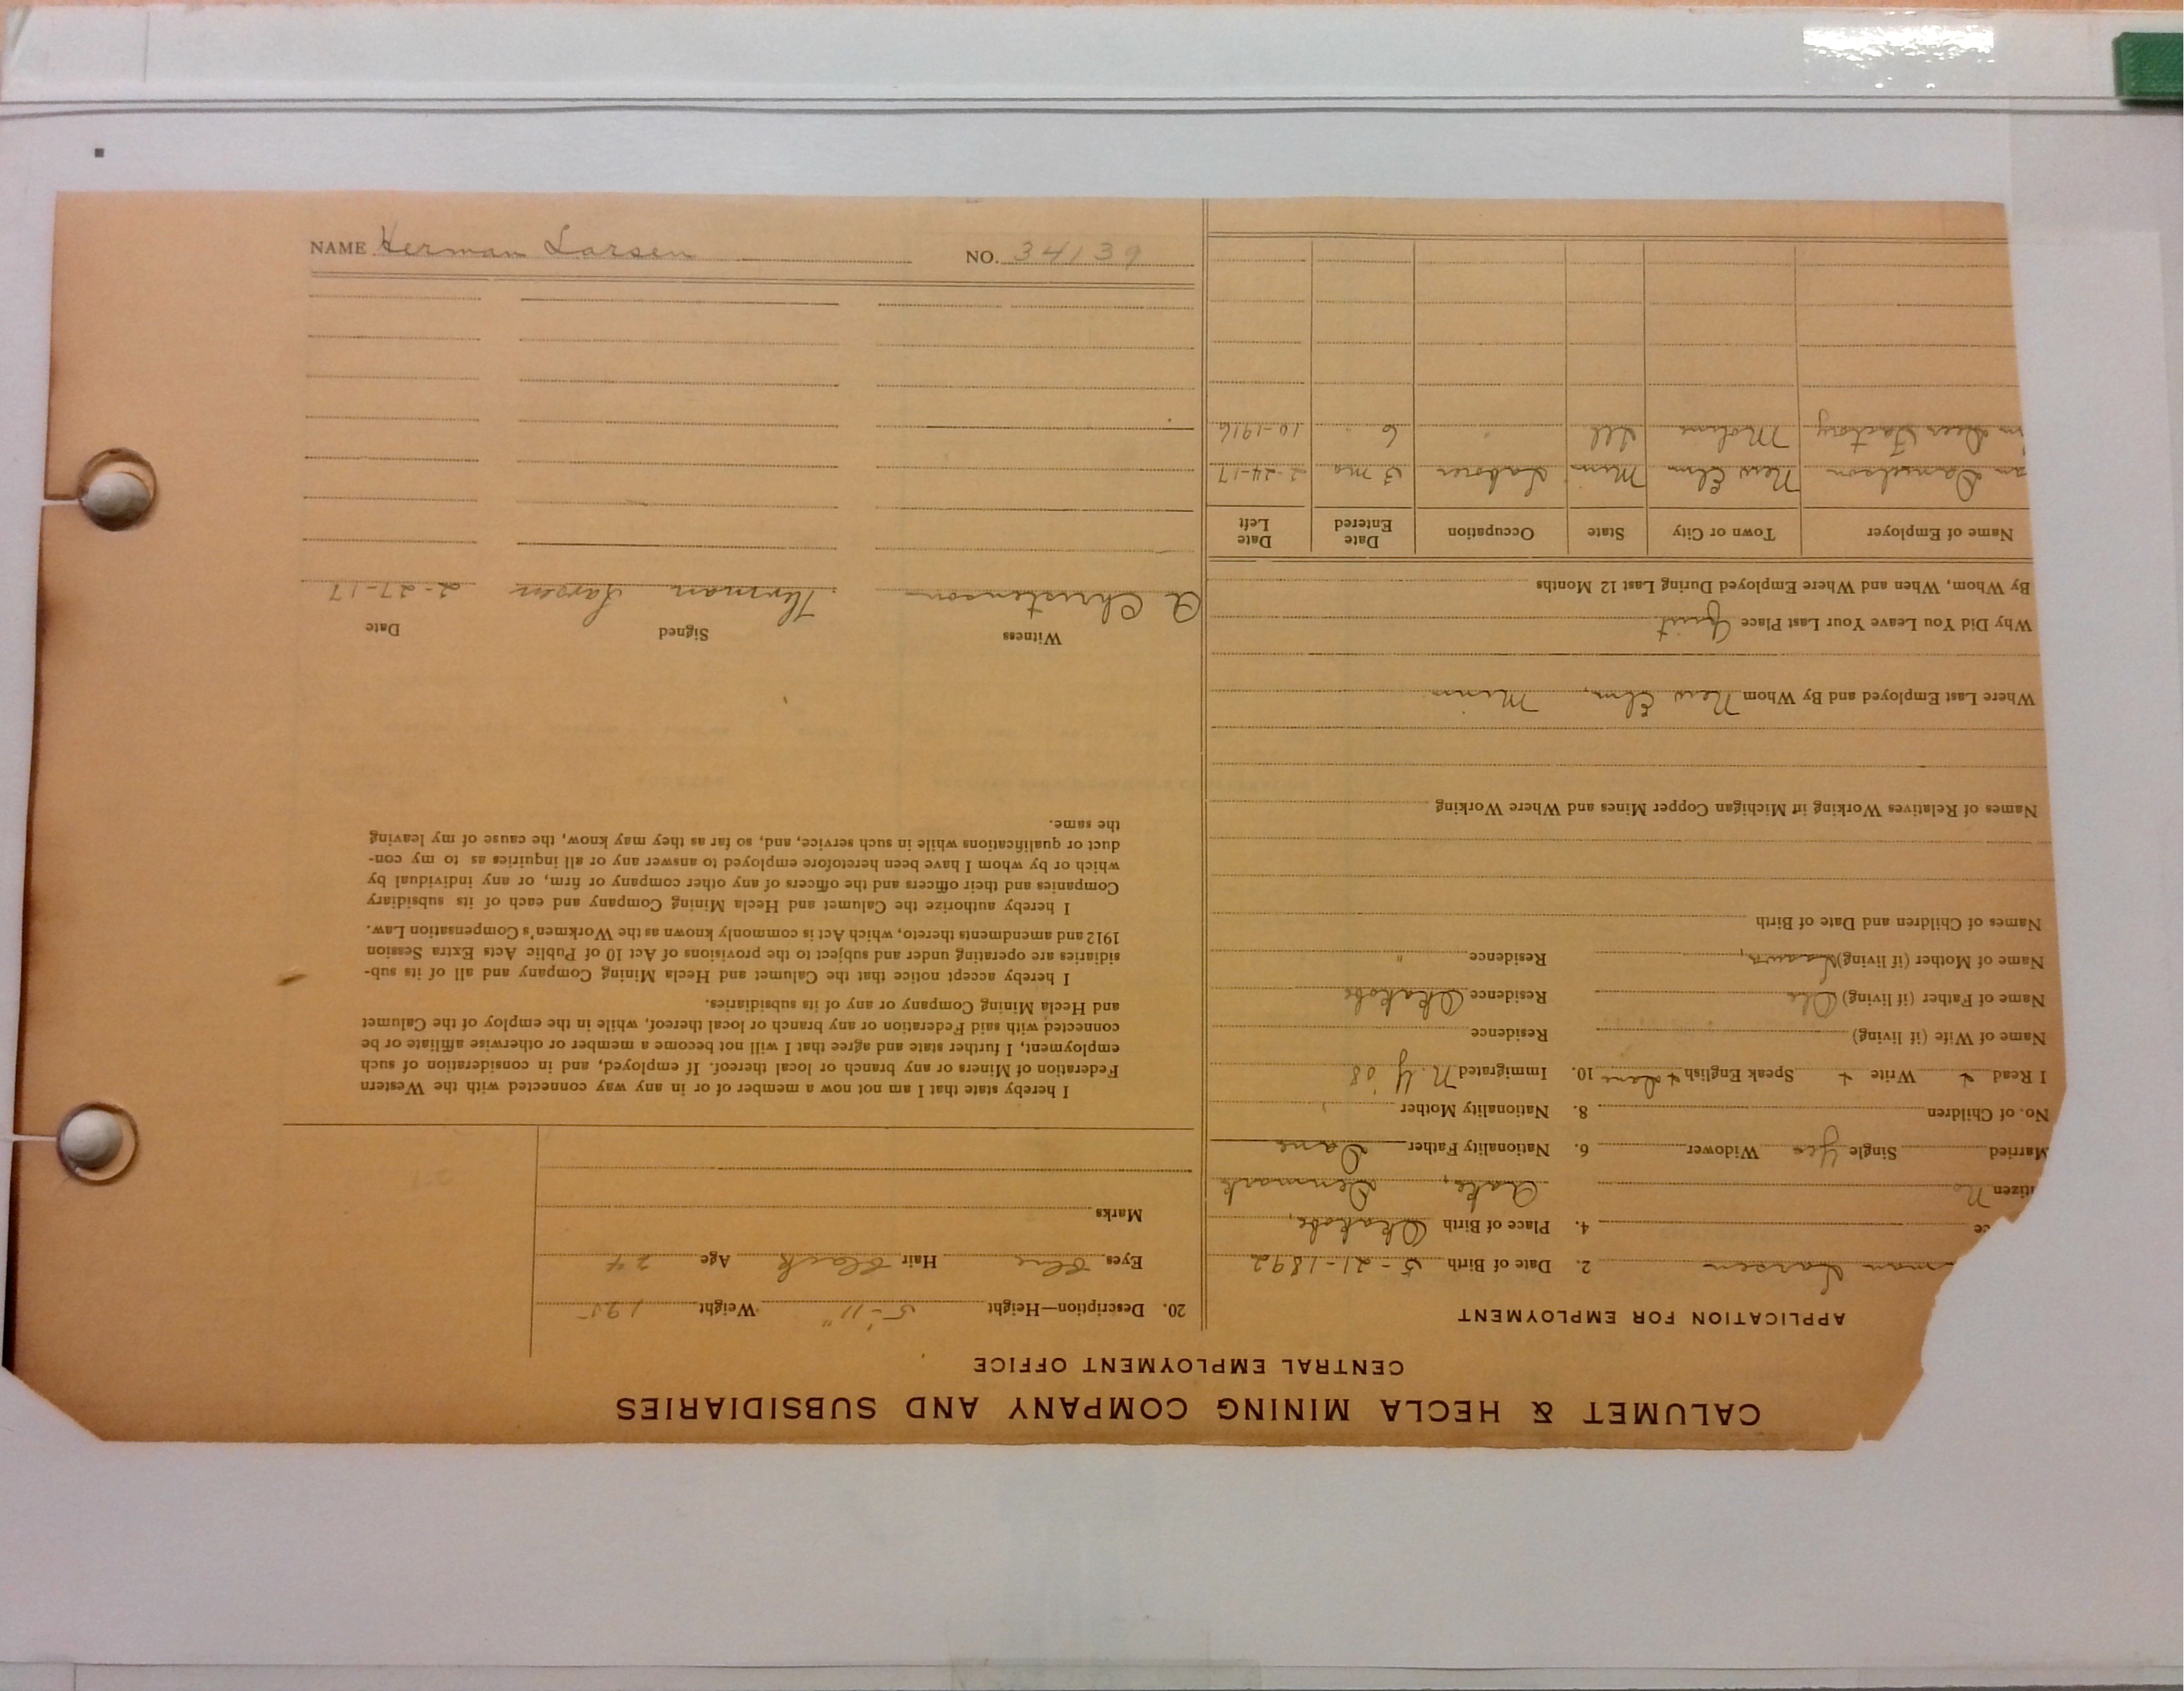 CALUMET & HECLA MINING COMPANY AND SUBSIDIARIES
CENTRAL EMPLOYMENT OFFICE
APPLICATION FOR EMPLOYMENT
man Larsen 2. Date of Birth 5-21-1892
ce 4. Place of Birth
itizen No Denmark
Married Single Yes Widower 6. Nationality Father Dane
No. of Children 8. Nationality Mother "
I Read + Write + Speak English + Dane 10. Immigrated N.Y '08
Name of Wife (if living) Residence
Name of Father (if living) Ole Residence
Name of Mother (if living) Residence "
Names of Children and Date of Birth
Names of Relatives Working in Michigan Copper Mines and Where Working
Where Last Employed and By Whom New Elm, Minn
Why Did You Leave Your Last Place Quit
By Whom, When and Where Employed During Last 12 Months
Name of Employer Town or City State Occupation Date Entered Date Left
Danielson New Elm Minn Laborer 3 mo 2-24-17
Deer Factory Moline Ill " 6 " 10-1916
20. Description—Height 5'-11" Weight 195
Eyes Blue Hair Black Age 24
Marks
I hereby state that I am not now a member of or in any way connected with the Western
Federation of Miners or any branch or local thereof. If employed, and in consideration of such
employment, I further state and agree that I will not become a member or otherwise affiliate or be
connected with said Federation or any branch or local thereof, while in the employ of the Calumet
and Hecla Mining Company or any of its subsidiaries.
I hereby accept notice that the Calumet and Hecla Mining Company and all of its sub-
sidiaries are operating under and subject to the provisions of Act 10 of Public Acts Extra Session
1912 and amendments thereto, which Act is commonly known as the Workmen's Compensation Law.
I hereby authorize the Calumet and Hecla Mining Company and each of its subsidiary
Companies and their officers and the officers of any other company or firm, or any individual by
which or by whom I have been heretofore employed to answer any or all inquiries as to my con-
duct or qualifications while in such service, and, so far as they may know, the cause of my leaving
the same.
Witness Signed Date
A Christenson Herman Larsen 2-27-17
NAME Herman Larsen NO. 34139